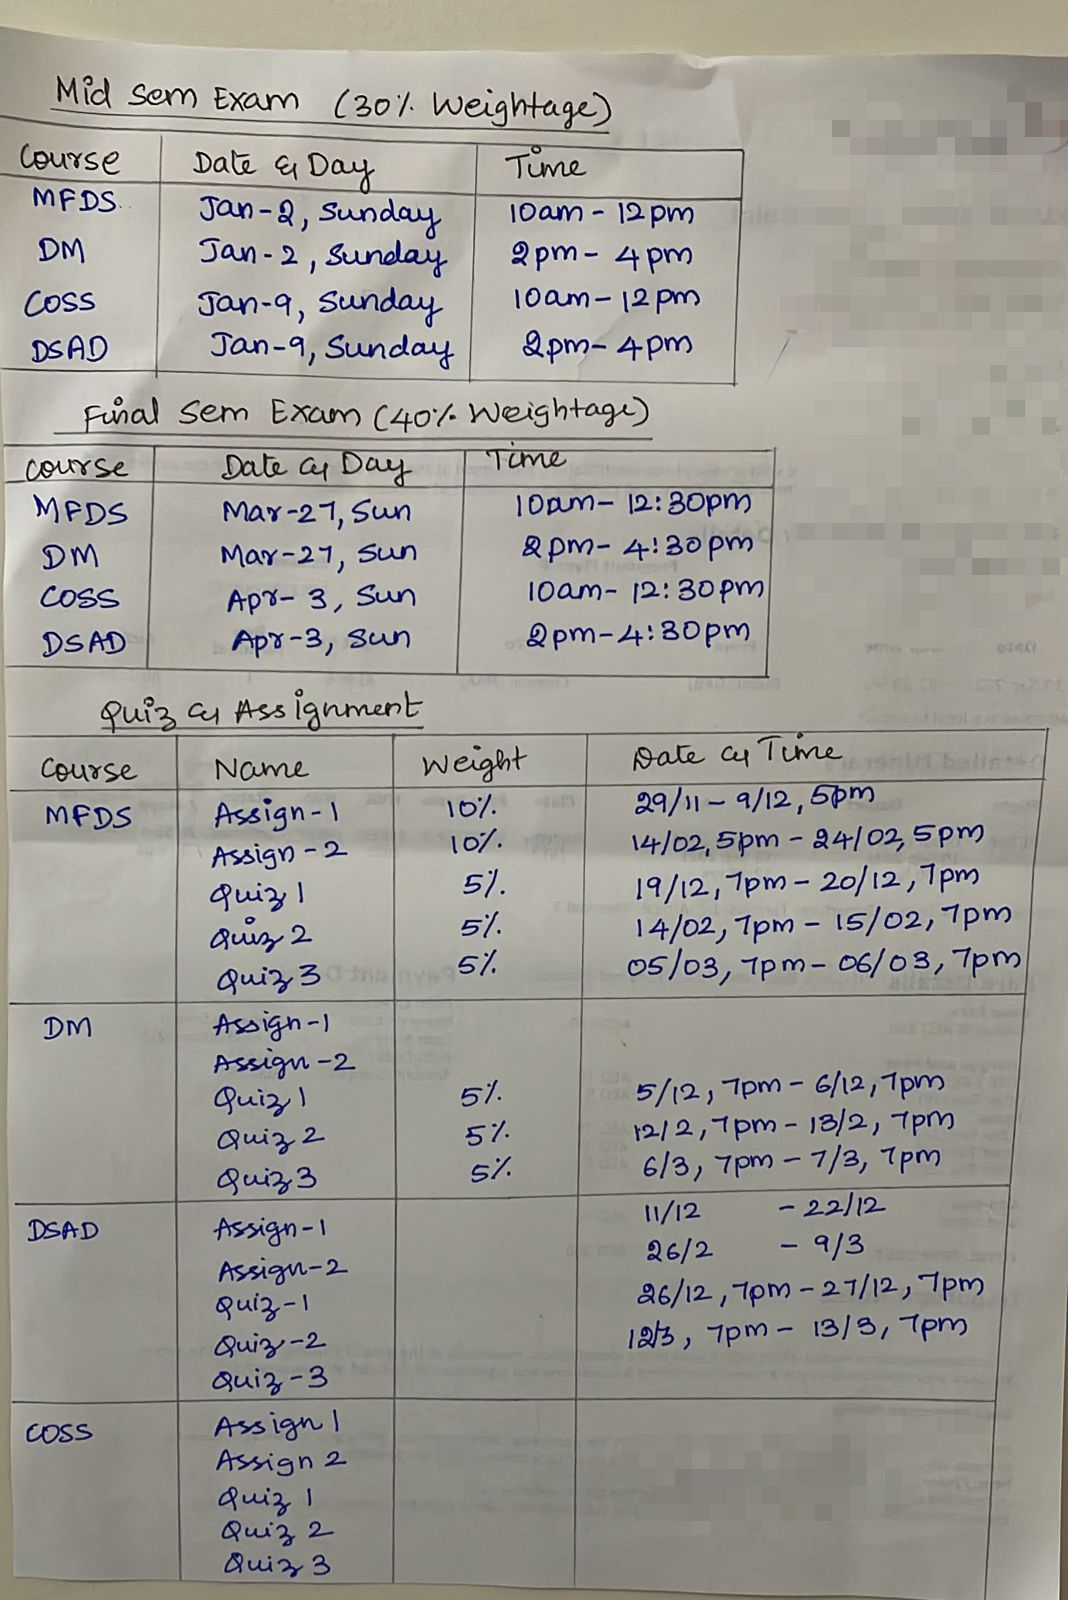 Mid Sem Exam (30% Weightage)
Course Date & Day Time
MFDS Jan-2, Sunday 10am - 12pm
DM Jan-2, Sunday 2pm - 4pm
COSS Jan-9, Sunday 10am - 12pm
DSAD Jan-9, Sunday 2pm - 4pm
Final Sem Exam (40% Weightage)
Course Date & Day Time
MFDS Mar-27, Sun 10am - 12:30pm
DM Mar-27, Sun 2pm - 4:30pm
COSS Apr-3, Sun 10am - 12:30pm
DSAD Apr-3, Sun 2pm - 4:30pm
Quiz & Assignment
Course Name Weight Date & Time
MFDS Assign-1 10% 29/11 - 9/12, 5pm
Assign-2 10% 14/02, 5pm - 24/02, 5pm
Quiz 1 5% 19/12, 7pm - 20/12, 7pm
Quiz 2 5% 14/02, 7pm - 15/02, 7pm
Quiz 3 5% 05/03, 7pm - 06/03, 7pm
DM Assign-1
Assign-2
Quiz 1 5% 5/12, 7pm - 6/12, 7pm
Quiz 2 5% 12/2, 7pm - 13/2, 7pm
Quiz 3 5% 6/3, 7pm - 7/3, 7pm
DSAD Assign-1 11/12 - 22/12
Assign-2 26/2 - 9/3
Quiz-1 26/12, 7pm - 27/12, 7pm
Quiz-2 12/3, 7pm - 13/3, 7pm
Quiz-3
COSS Assign 1
Assign 2
Quiz 1
Quiz 2
Quiz 3